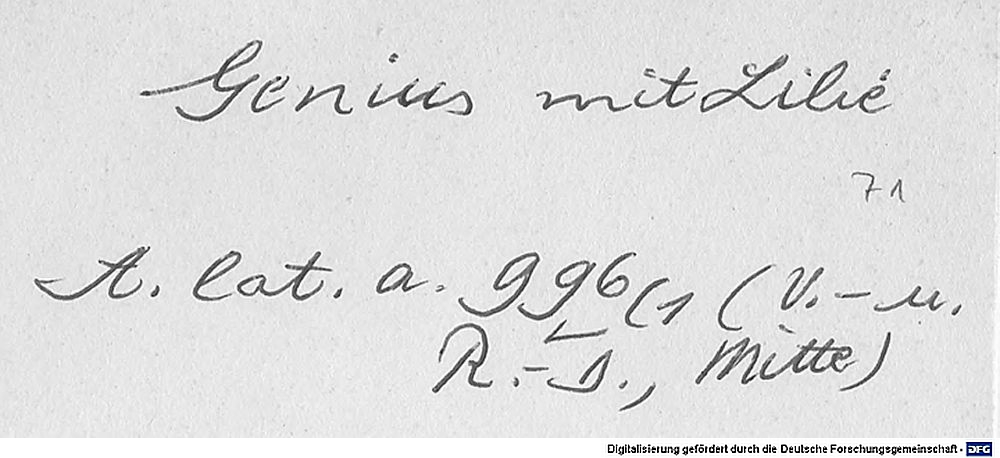 Genius mit Lilie
71
A. lat. a. 996(1 (V.- u.
R.-S., Mitte)
Digitalisierung gefördert durch die Deutsche Forschungsgemeinschaft - DFG